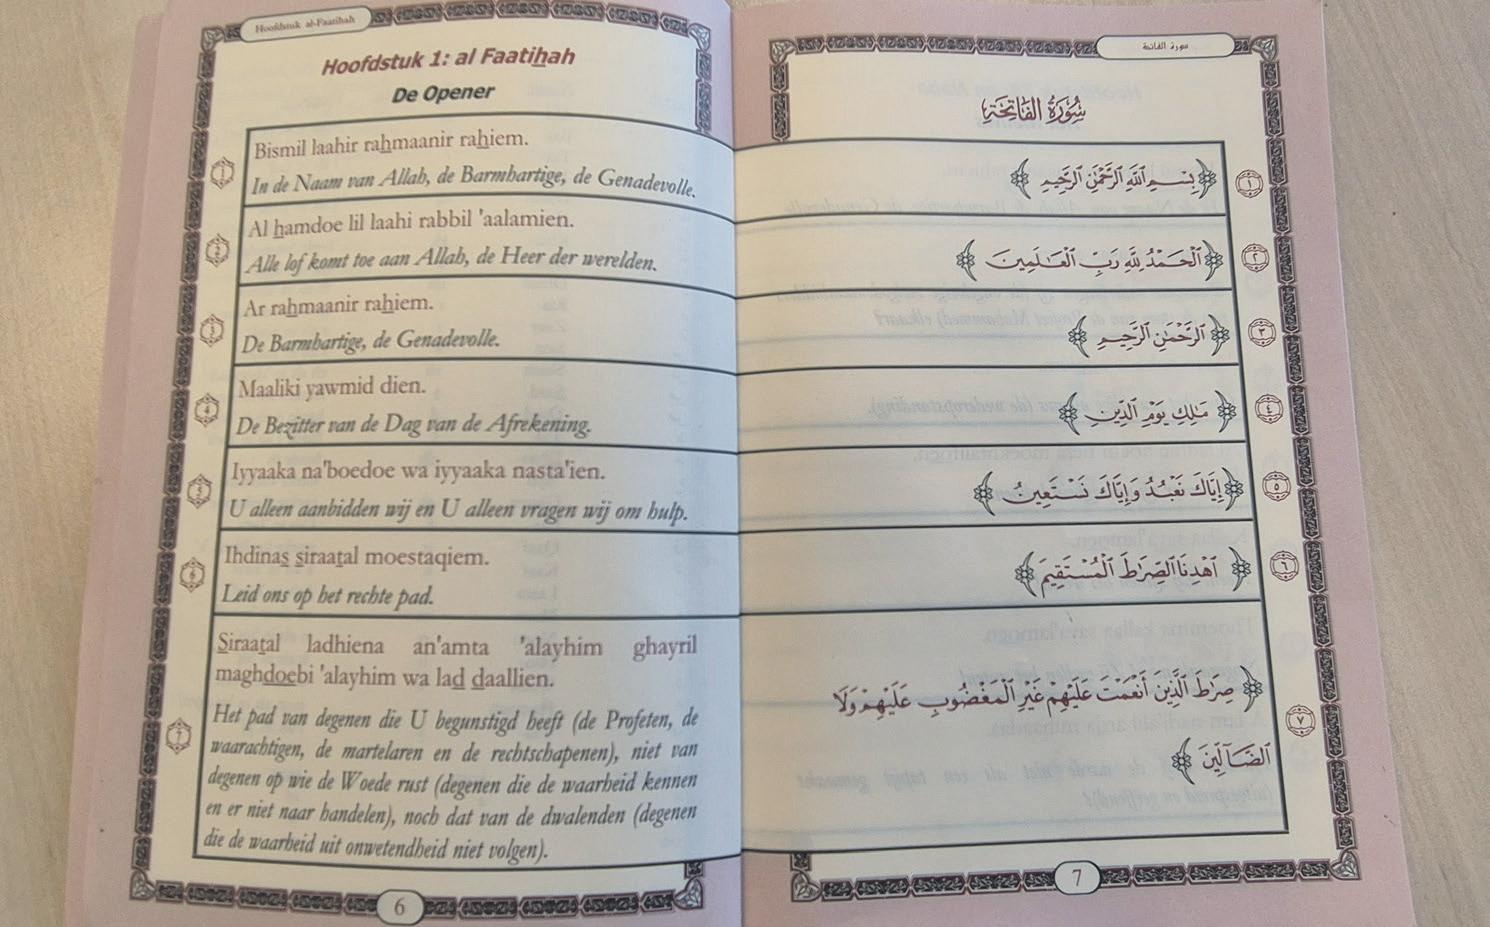 Hoofdstuk al-Faatihah
Hoofdstuk 1: al Faatihah
De Opener
1
Bismil laahir rahmaanir rahiem.
In de Naam van Allah, de Barmhartige, de Genadevolle.
2
Al hamdoe lil laahi rabbil 'aalamien.
Alle lof komt toe aan Allah, de Heer der werelden.
3
Ar rahmaanir rahiem.
De Barmhartige, de Genadevolle.
4
Maaliki yawmid dien.
De Bezitter van de Dag van de Afrekening.
Iyyaaka na'boedoe wa iyyaaka nasta'ien.
U alleen aanbidden wij en U alleen vragen wij om hulp.
6
Ihdinas siraatal moestaqiem.
Leid ons op het rechte pad.
7
Siraatal ladhiena an'amta 'alayhim ghayril
maghdoebi 'alayhim wa lad daallien.
Het pad van degenen die U begunstigd heeft (de Profeten, de
waarachtigen, de martelaren en de rechtschapenen), niet van
degenen op wie de Woede rust (degenen die de waarheid kennen
en er niet naar handelen), noch dat van de dwalenden (degenen
die de waarheid uit onwetendheid niet volgen).
6
سورة الفاتحة
سُورَةُ الفَاتِحَةِ
١
بِسْمِ ٱللَّهِ ٱلرَّحْمَٰنِ ٱلرَّحِيمِ
٢
ٱلْحَمْدُ لِلَّهِ رَبِّ ٱلْعَٰلَمِينَ
٣
ٱلرَّحْمَٰنِ ٱلرَّحِيمِ
٤
مَٰلِكِ يَوْمِ ٱلدِّينِ
٥
إِيَّاكَ نَعْبُدُ وَإِيَّاكَ نَسْتَعِينُ
٦
ٱهْدِنَا ٱلصِّرَٰطَ ٱلْمُسْتَقِيمَ
٧
صِرَٰطَ ٱلَّذِينَ أَنْعَمْتَ عَلَيْهِمْ غَيْرِ ٱلْمَغْضُوبِ عَلَيْهِمْ وَلَا
ٱلضَّآلِّينَ
7